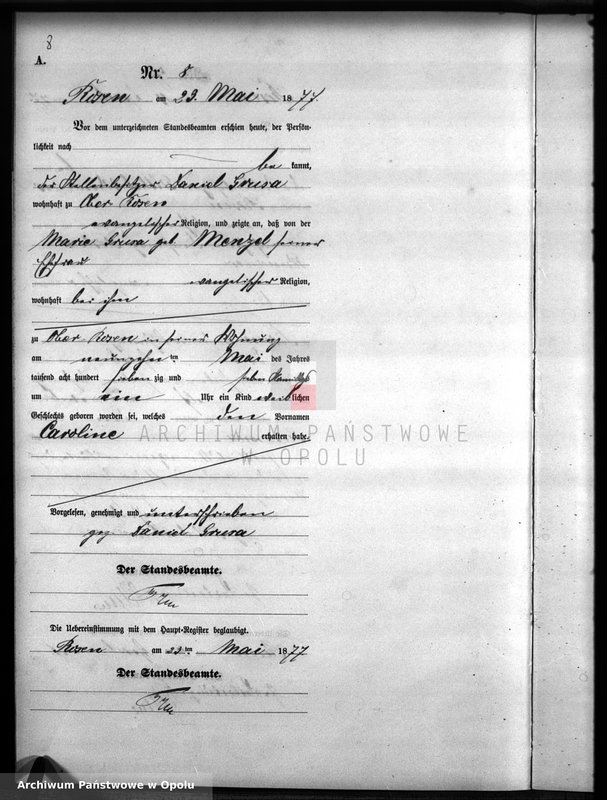 8
A.
Nr. 8
Rosen am 23. Mai 1877.
Vor dem unterzeichneten Standesbeamten erschien heute, der Persön-
lichkeit nach
be kannt,
der Stellenbesitzer Daniel Grusa
wohnhaft zu Ober Rosen
evangelischer Religion, und zeigte an, daß von der
Marie Grusa geb. Menzel seiner
Ehefrau
evangelischer Religion,
wohnhaft bei ihm
zu Ober Rosen in seiner Wohnung
am neunzehn ten Mai des Jahres
tausend acht hundert sieben zig und sieben Vormittags
um ein Uhr ein Kind weiblichen
Geschlechts geboren worden sei, welches den Vornamen
Caroline erhalten habe.
ARCHIWUM PAŃSTWOWE
W OPOLU
Vorgelesen, genehmigt und unterschrieben
gez. Daniel Grusa
Der Standesbeamte.
Die Uebereinstimmung mit dem Haupt-Register beglaubigt.
Rosen am 23. ten Mai 1877
Der Standesbeamte.
Archiwum Państwowe w Opolu